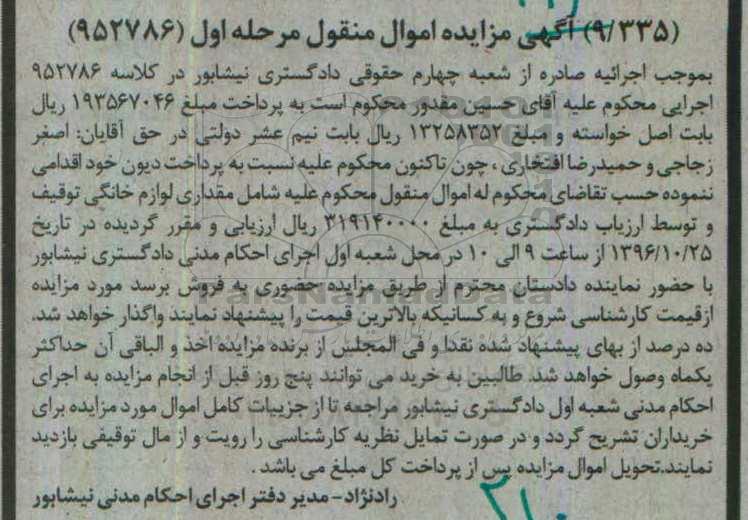 (۹/۳۳۵) آگهی مزایده اموال منقول مرحله اول (۹۵۲۷۸۶)
بموجب اجرائیه صادره از شعبه چهارم حقوقی دادگستری نیشابور در کلاسه ۹۵۲۷۸۶
اجرایی محکوم علیه آقای حسین مقدور محکوم است به پرداخت مبلغ ۱۹۳۵۶۷۰۴۶ ریال
بابت اصل خواسته و مبلغ ۱۳۲۵۸۳۵۲ ریال بابت نیم عشر دولتی در حق آقایان: اصغر
زجاجی و حمیدرضا افتخاری ، چون تاکنون محکوم علیه نسبت به پرداخت دیون خود اقدامی
ننموده حسب تقاضای محکوم له اموال منقول محکوم علیه شامل مقداری لوازم خانگی توقیف
و توسط ارزیاب دادگستری به مبلغ ۳۱۹۱۴۰۰۰۰ ریال ارزیابی و مقرر گردیده در تاریخ
۱۳۹۶/۱۰/۲۵ از ساعت ۹ الی ۱۰ در محل شعبه اول اجرای احکام مدنی دادگستری نیشابور
با حضور نماینده دادستان محترم از طریق مزایده حضوری به فروش برسد مورد مزایده
ازقیمت کارشناسی شروع و به کسانیکه بالاترین قیمت را پیشنهاد نمایند واگذار خواهد شد.
ده درصد از بهای پیشنهاد شده نقدا و فی المجلس از برنده مزایده اخذ و الباقی آن حداکثر
یکماه وصول خواهد شد. طالبین به خرید می توانند پنج روز قبل از انجام مزایده به اجرای
احکام مدنی شعبه اول دادگستری نیشابور مراجعه تا از جزییات کامل اموال مورد مزایده برای
خریداران تشریح گردد و در صورت تمایل نظریه کارشناسی را رویت و از مال توقیفی بازدید
نمایند.تحویل اموال مزایده پس از پرداخت کل مبلغ می باشد .
رادنژاد - مدیر دفتر اجرای احکام مدنی نیشابور
ParsNamadData